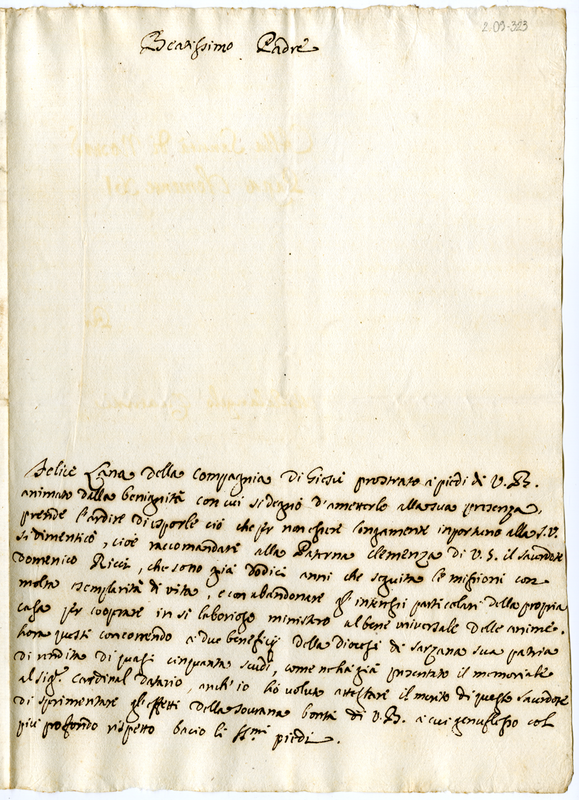 2.09-323
Beatissimo Padre
Felice Lana della Compagnia di Giesù prostrato a piedi di V. B.
animato dalla benignità con cui si degnò d'ametterlo alla sua presenza,
prende l'ardire di esporle ciò che per non essere longamente inportuno alla S.V.
si dimenticò, cioè raccomandare alla Paterna clemenza di V.S. il sacerdote
Domenico Ricci, che sono già dodici anni che seguita le missioni con
molta esemplarità di vita, e con abandonare gl'interessi particolari della propria
casa per cooprare in sì laborioso ministero al bene universale delle anime.
hora questi concorrendo a due beneficij della diocesi di Sarzana sua patria
di rendita di quasi cinquanta scudi, come ne ha già presentato il memoriale
al sigr. Cardinal datario, anch'io hò voluto attestare il merito di questo sacerdote
di sprimentare gl'effetti della sourana bontà di V.B. a cui genuflesso col
più profondo rispetto bacio li ssmi piedi.